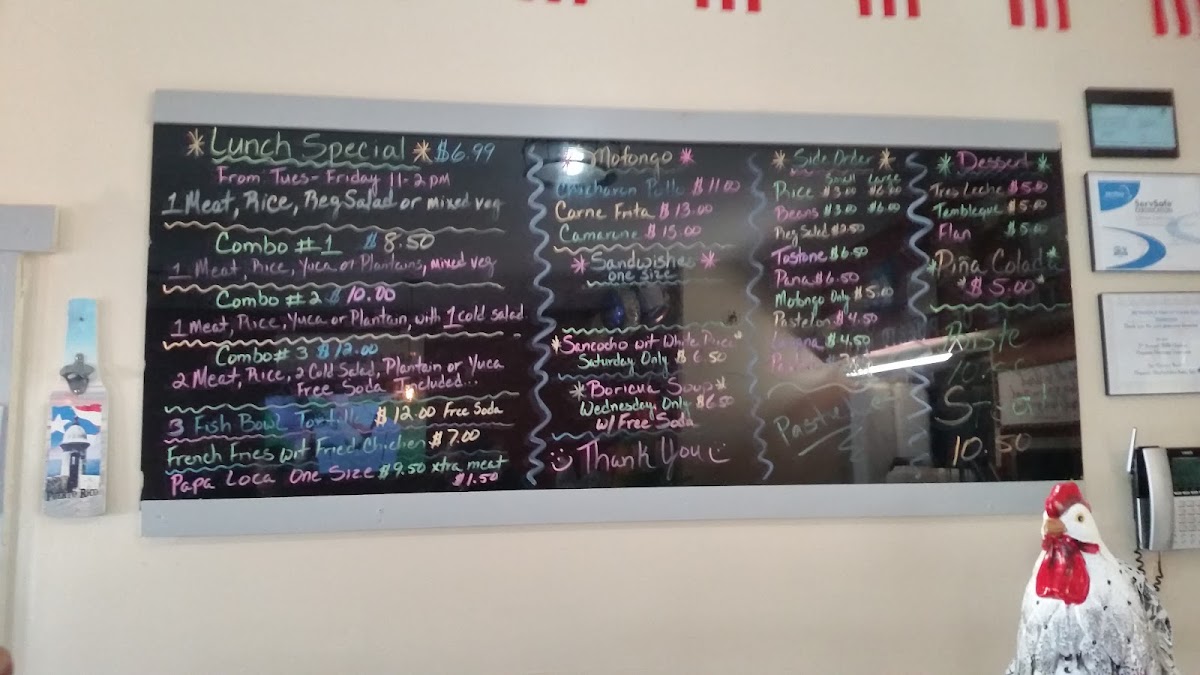 *Lunch Special* $6.99
From Tues-Friday 11-2pm
1 Meat, Rice, Reg Salad or mixed veg
Combo #1 $8.50
1 Meat, Rice, Yuca or Plantains, mixed veg
Combo #2 $10.00
1 Meat, Rice, Yuca or Plantain, with 1 cold salad
Combo #3 $12.00
2 Meat, Rice, 2 Cold Salad, Plantain or Yuca
Free Soda Included...
3 Fish Bowl Tortillo $12.00 Free Soda
French Fries wit Fried Chicken $7.00
Papa Loca One Size $9.50 xtra meat
$1.50
*Mofongo*
Chicharon Pollo $11.00
Carne Frita $13.00
Camarone $15.00
*Sandwishes*
one size
*Sancocho wit White Rice*
Saturday Only $6.50
*Boricua Soup*
Wednesday Only $6.50
w/Free Soda
Thank You
*Side Order*
Small Large
Rice $3.00 $6.00
Beans $3.00 $6.00
Reg Salad $2.50
Tostone $6.50
Pana $6.50
Mofongo Only $5.00
Pastelon $4.50
$4.50
*Dessert*
Tres Leche $5.00
Tembleque $5.00
Flan $5.00
*Piña Colada*
*$5.00*
10.50
ServSafe
PUERTO RICO